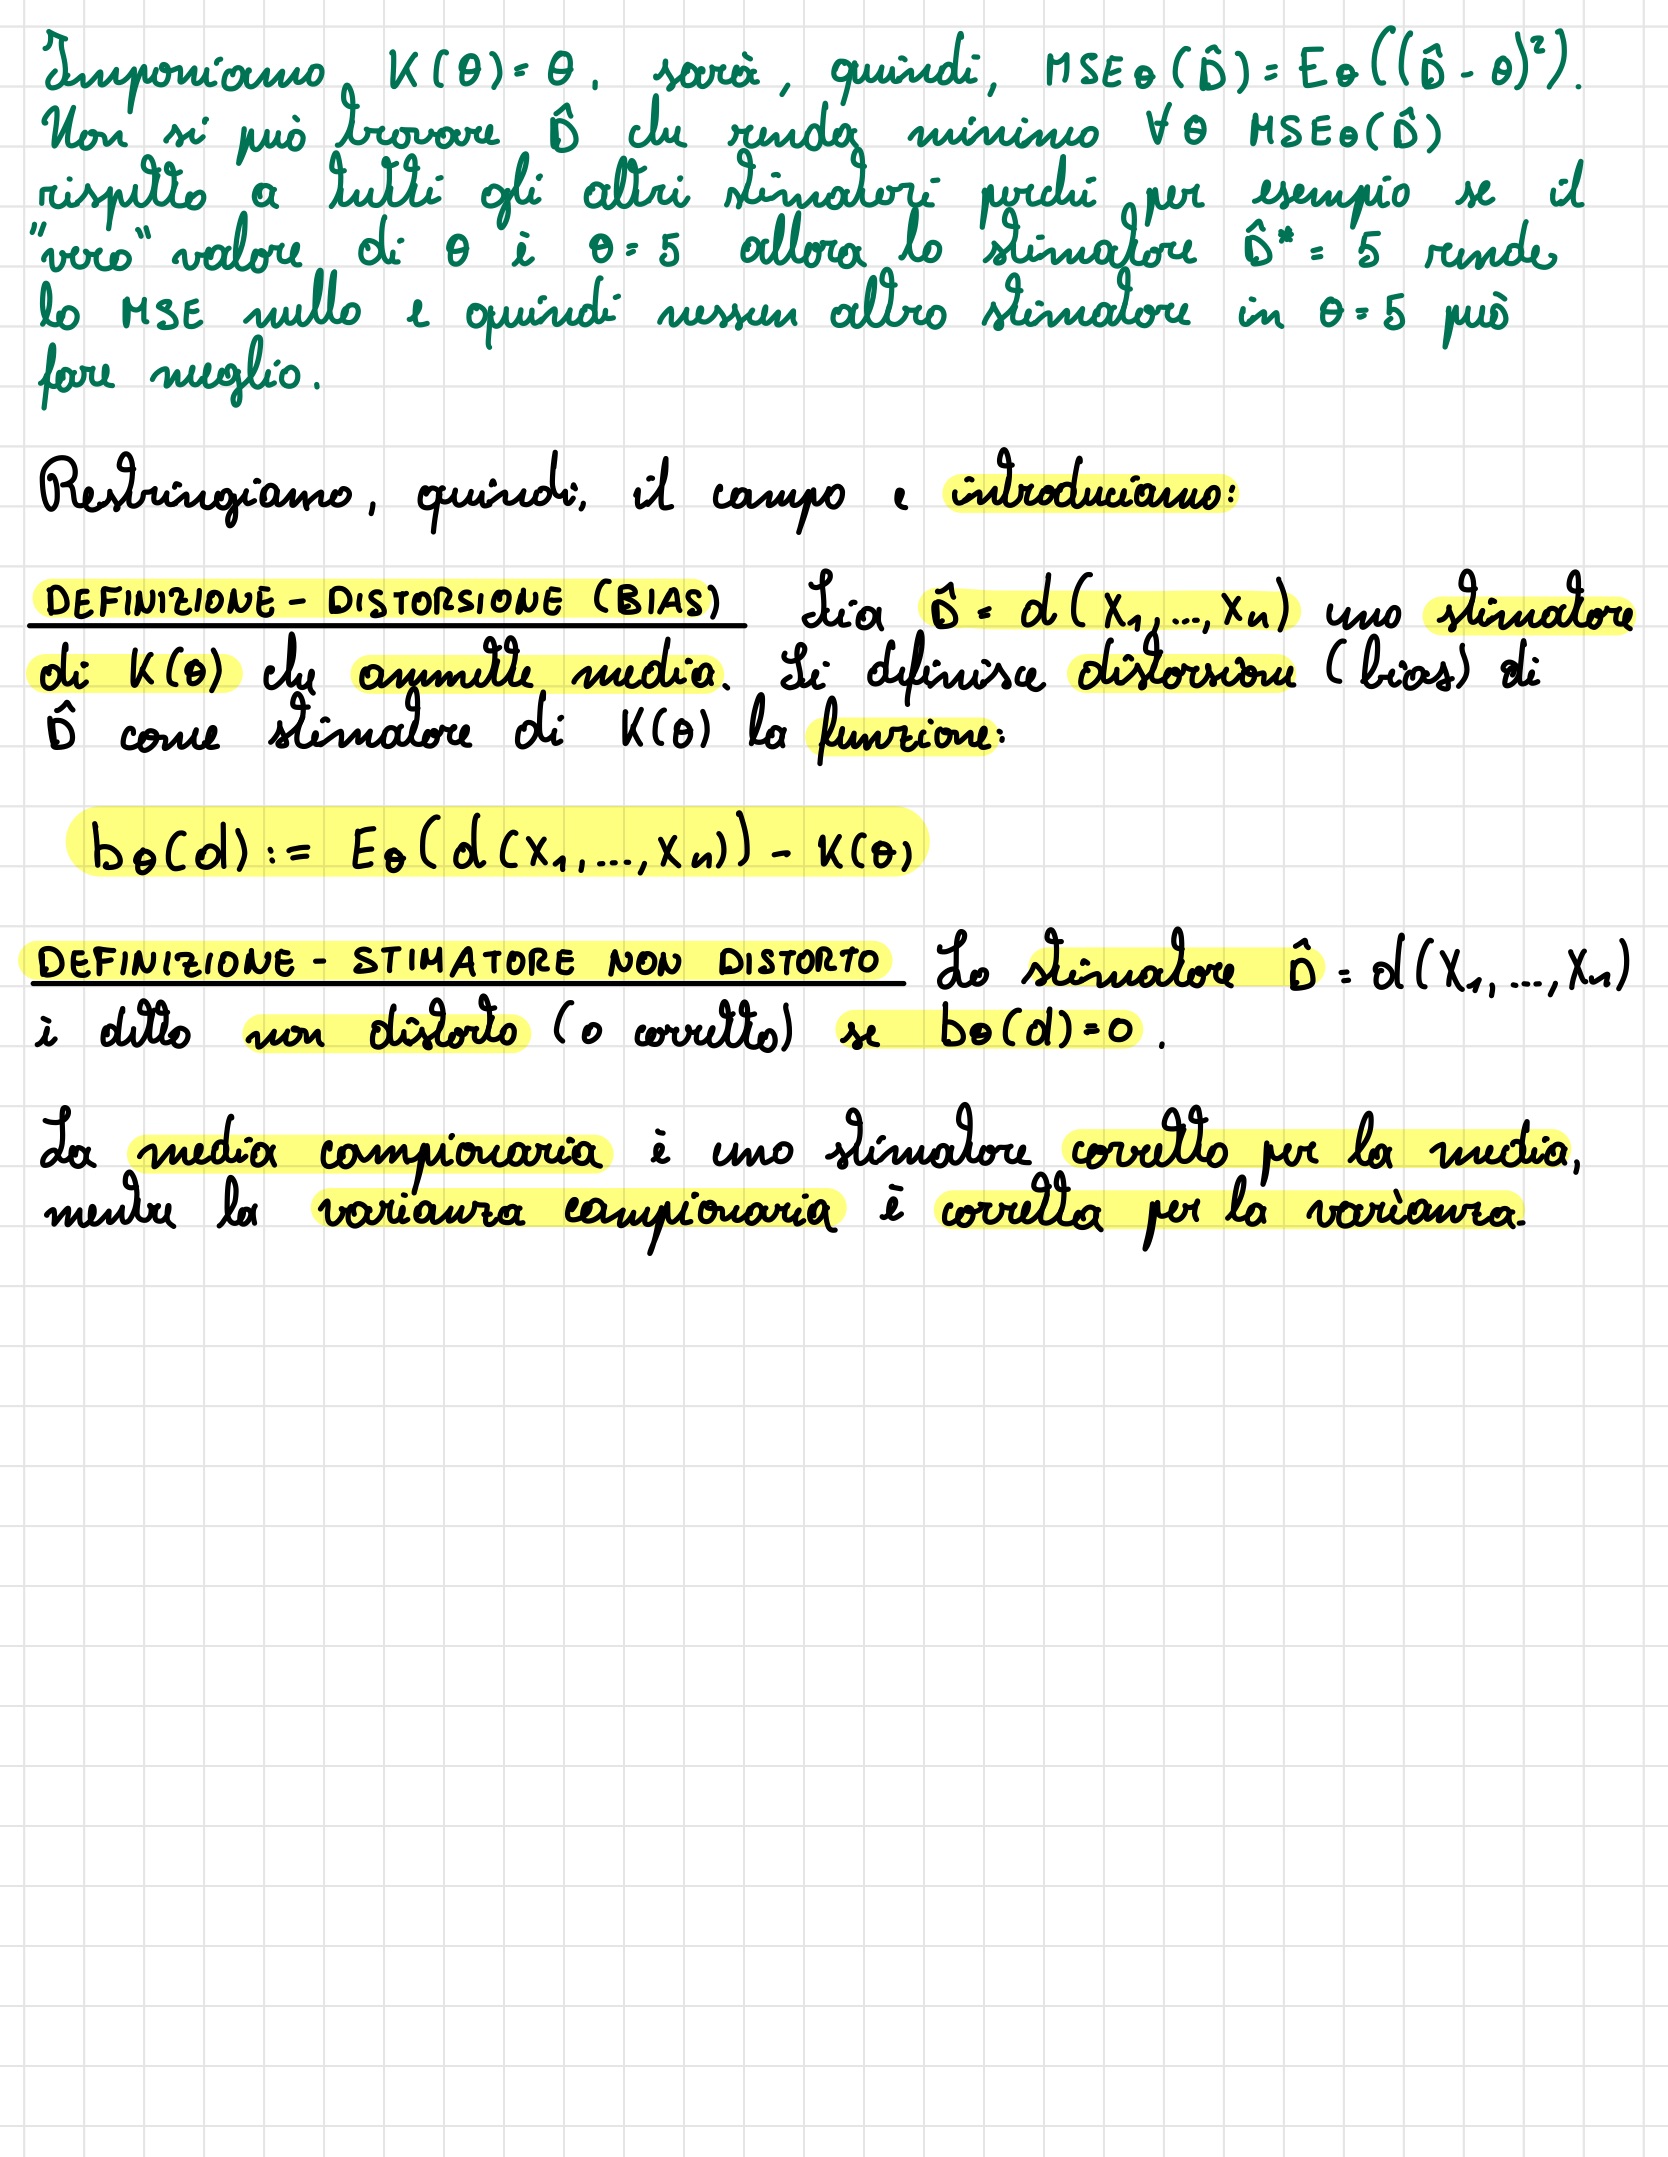 Imponiamo K(θ)=θ, sarà, quindi, MSEθ(D̂)=Eθ((D̂-θ)²).
Non si può trovare D̂ che renda minimo ∀θ MSEθ(D̂)
rispetto a tutti gli altri stimatori perché per esempio se il
"vero" valore di θ è θ=5 allora lo stimatore D̂*=5 rende
lo MSE nullo e quindi nessun altro stimatore in θ=5 può
fare meglio.
Restringiamo, quindi, il campo e introduciamo:
DEFINIZIONE - DISTORSIONE (BIAS) Sia D̂=d(X₁,...,Xₙ) uno stimatore
di K(θ) che ammette media. Si definisce distorsione (bias) di
D̂ come stimatore di K(θ) la funzione:
bθ(d):= Eθ(d(X₁,...,Xₙ))-K(θ)
DEFINIZIONE - STIMATORE NON DISTORTO Lo stimatore D̂=d(X₁,...,Xₙ)
è detto non distorto (o corretto) se bθ(d)=0.
La media campionaria è uno stimatore corretto per la media,
mentre la varianza campionaria è corretta per la varianza.